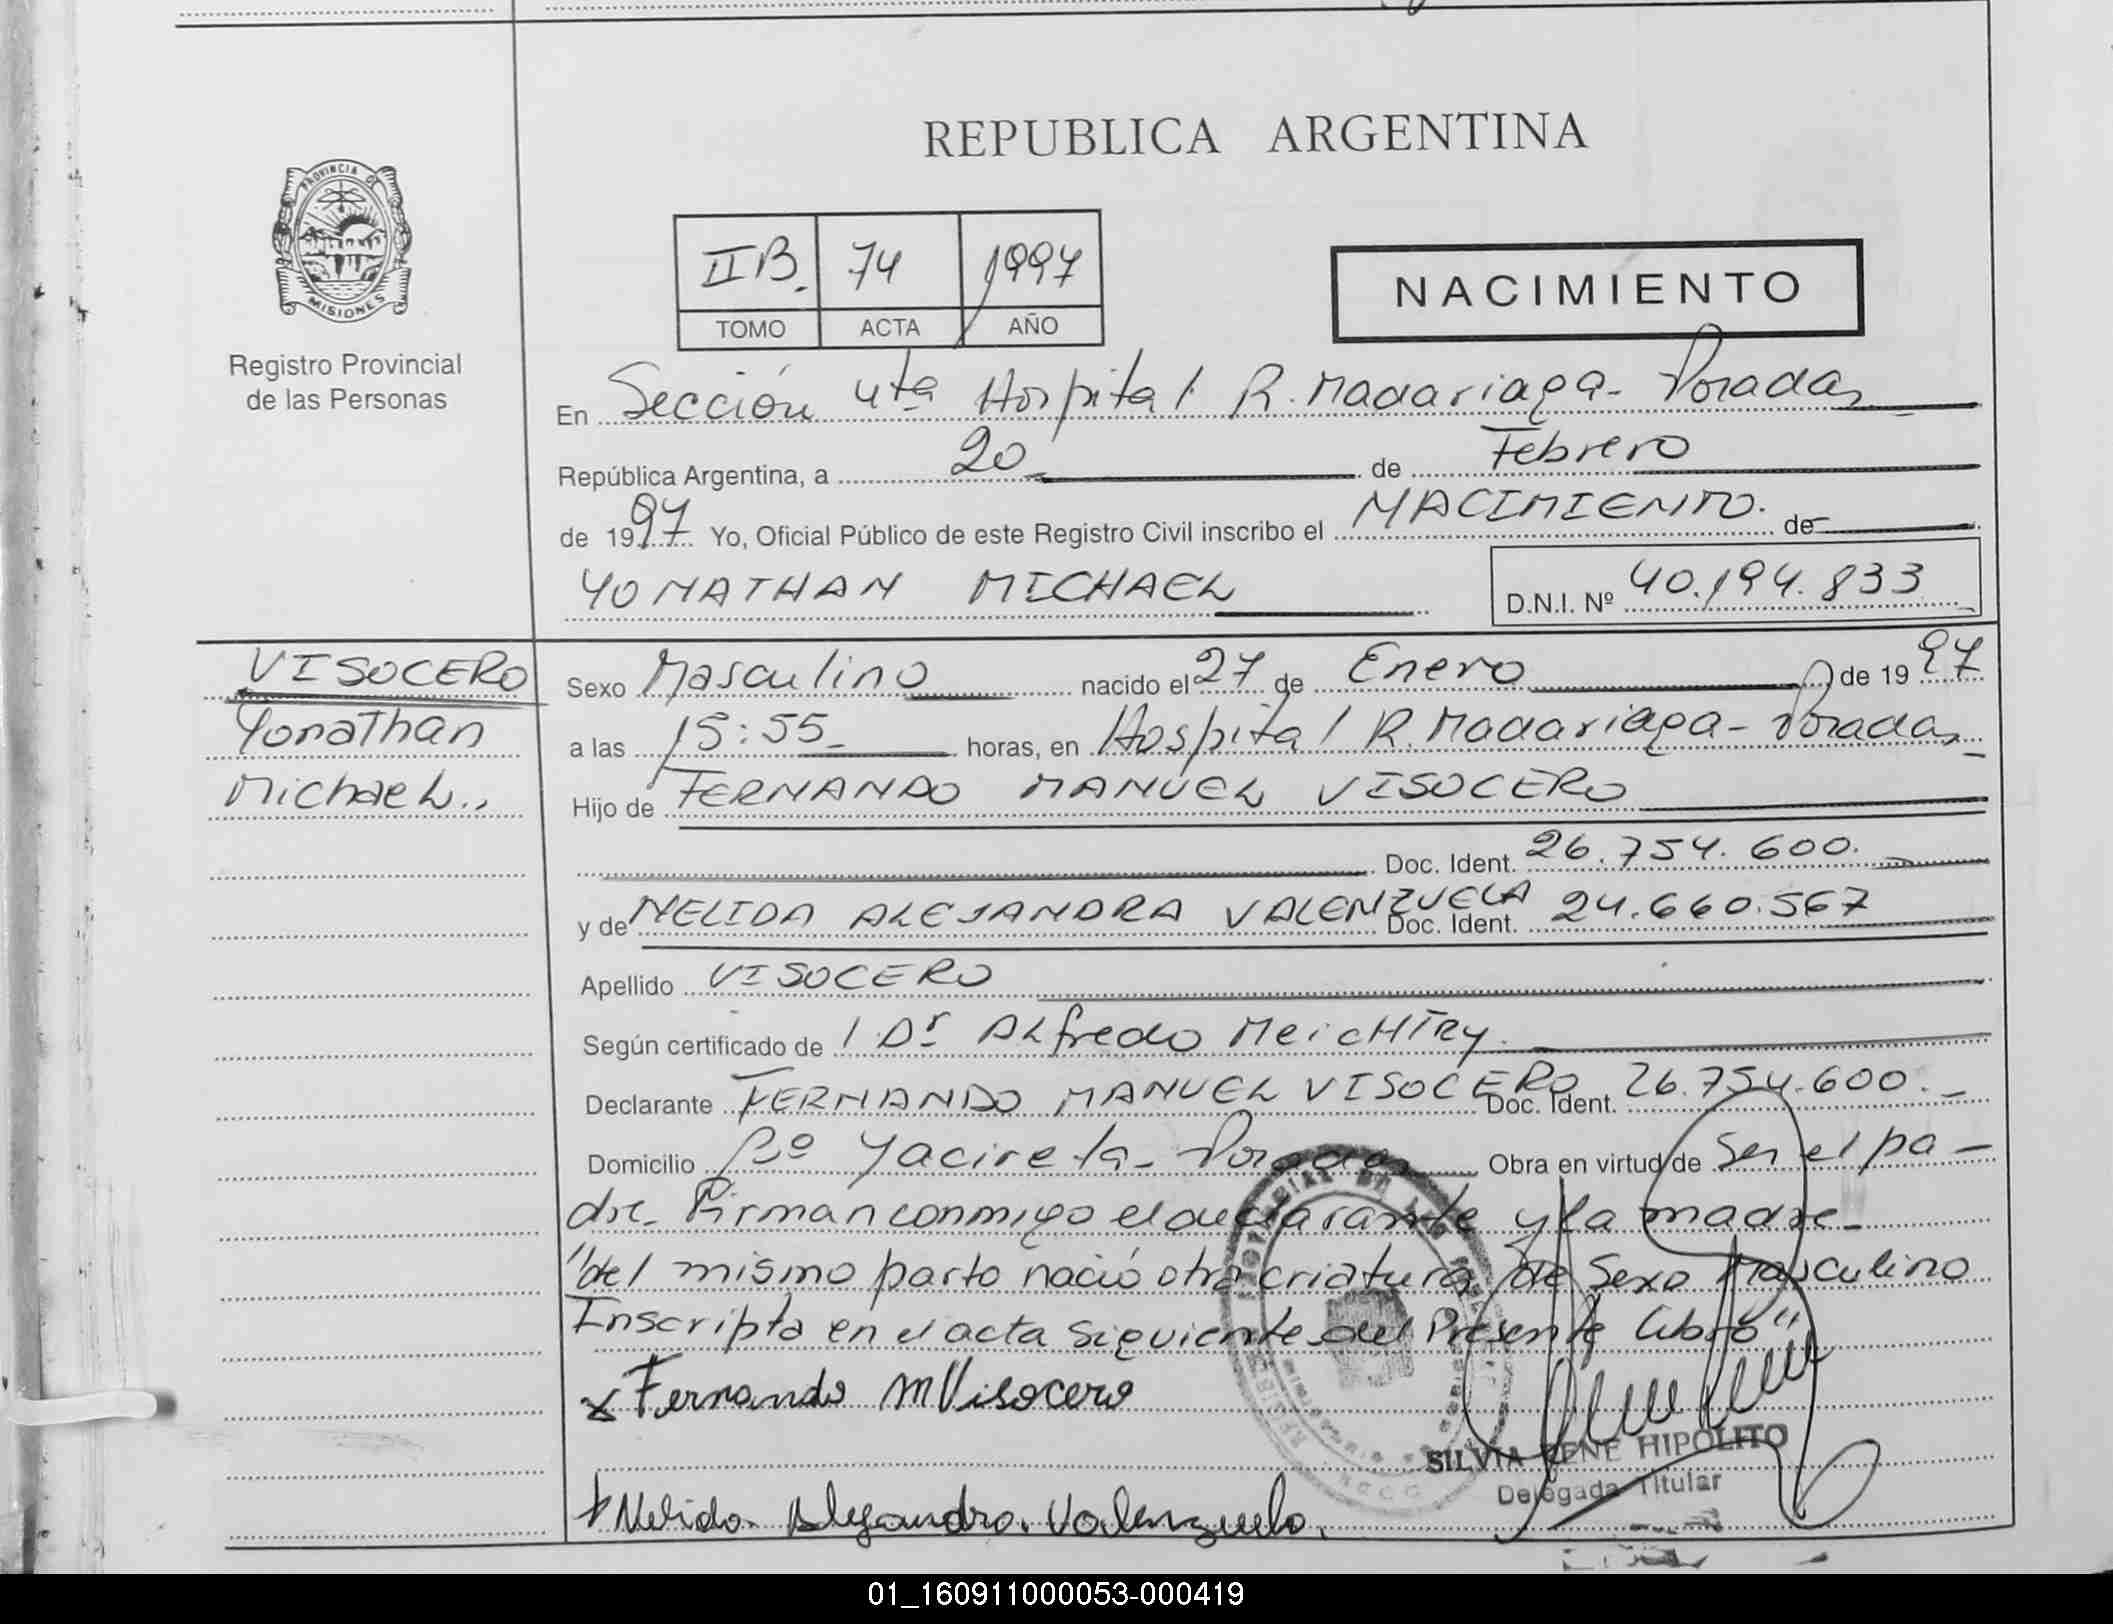 REPUBLICA ARGENTINA
PROVINCIA DE
MISIONES
Registro Provincial
de las Personas
II B. 74 1997
TOMO ACTA AÑO
NACIMIENTO
En Sección 4ta Hospital R. Madariaga - Posadas
República Argentina, a 20 de Febrero
de 1997 Yo, Oficial Público de este Registro Civil inscribo el NACIMIENTO. de
YONATHAN MICHAEL D.N.I. Nº 40.194.833
VISOCERO
Yonathan
Michael.,
Sexo Masculino nacido el 27 de Enero de 1997
a las 15:55 horas, en Hospital R. Madariaga - Posadas
Hijo de FERNANDO MANUEL VISOCERO
Doc. Ident. 26.754.600.
y de NELIDA ALEJANDRA VALENZUELA Doc. Ident. 24.660.567
Apellido VISOCERO
Según certificado de l Dr Alfredo Meichtry.
Declarante FERNANDO MANUEL VISOCERO Doc. Ident. 26.754.600.
Domicilio Bº Yacireta - Posadas Obra en virtud de ser el pa-
dre - Firman conmigo el declarante y la madre -
"del mismo parto nació otra criatura de sexo Masculino
Inscripta en el acta siguiente del Presente Libro"
x Fernando M Visocero
SILVIA RENE HIPOLITO
Delegada Titular
x Nelida Alejandra Valenzuela.
01_160911000053-000419